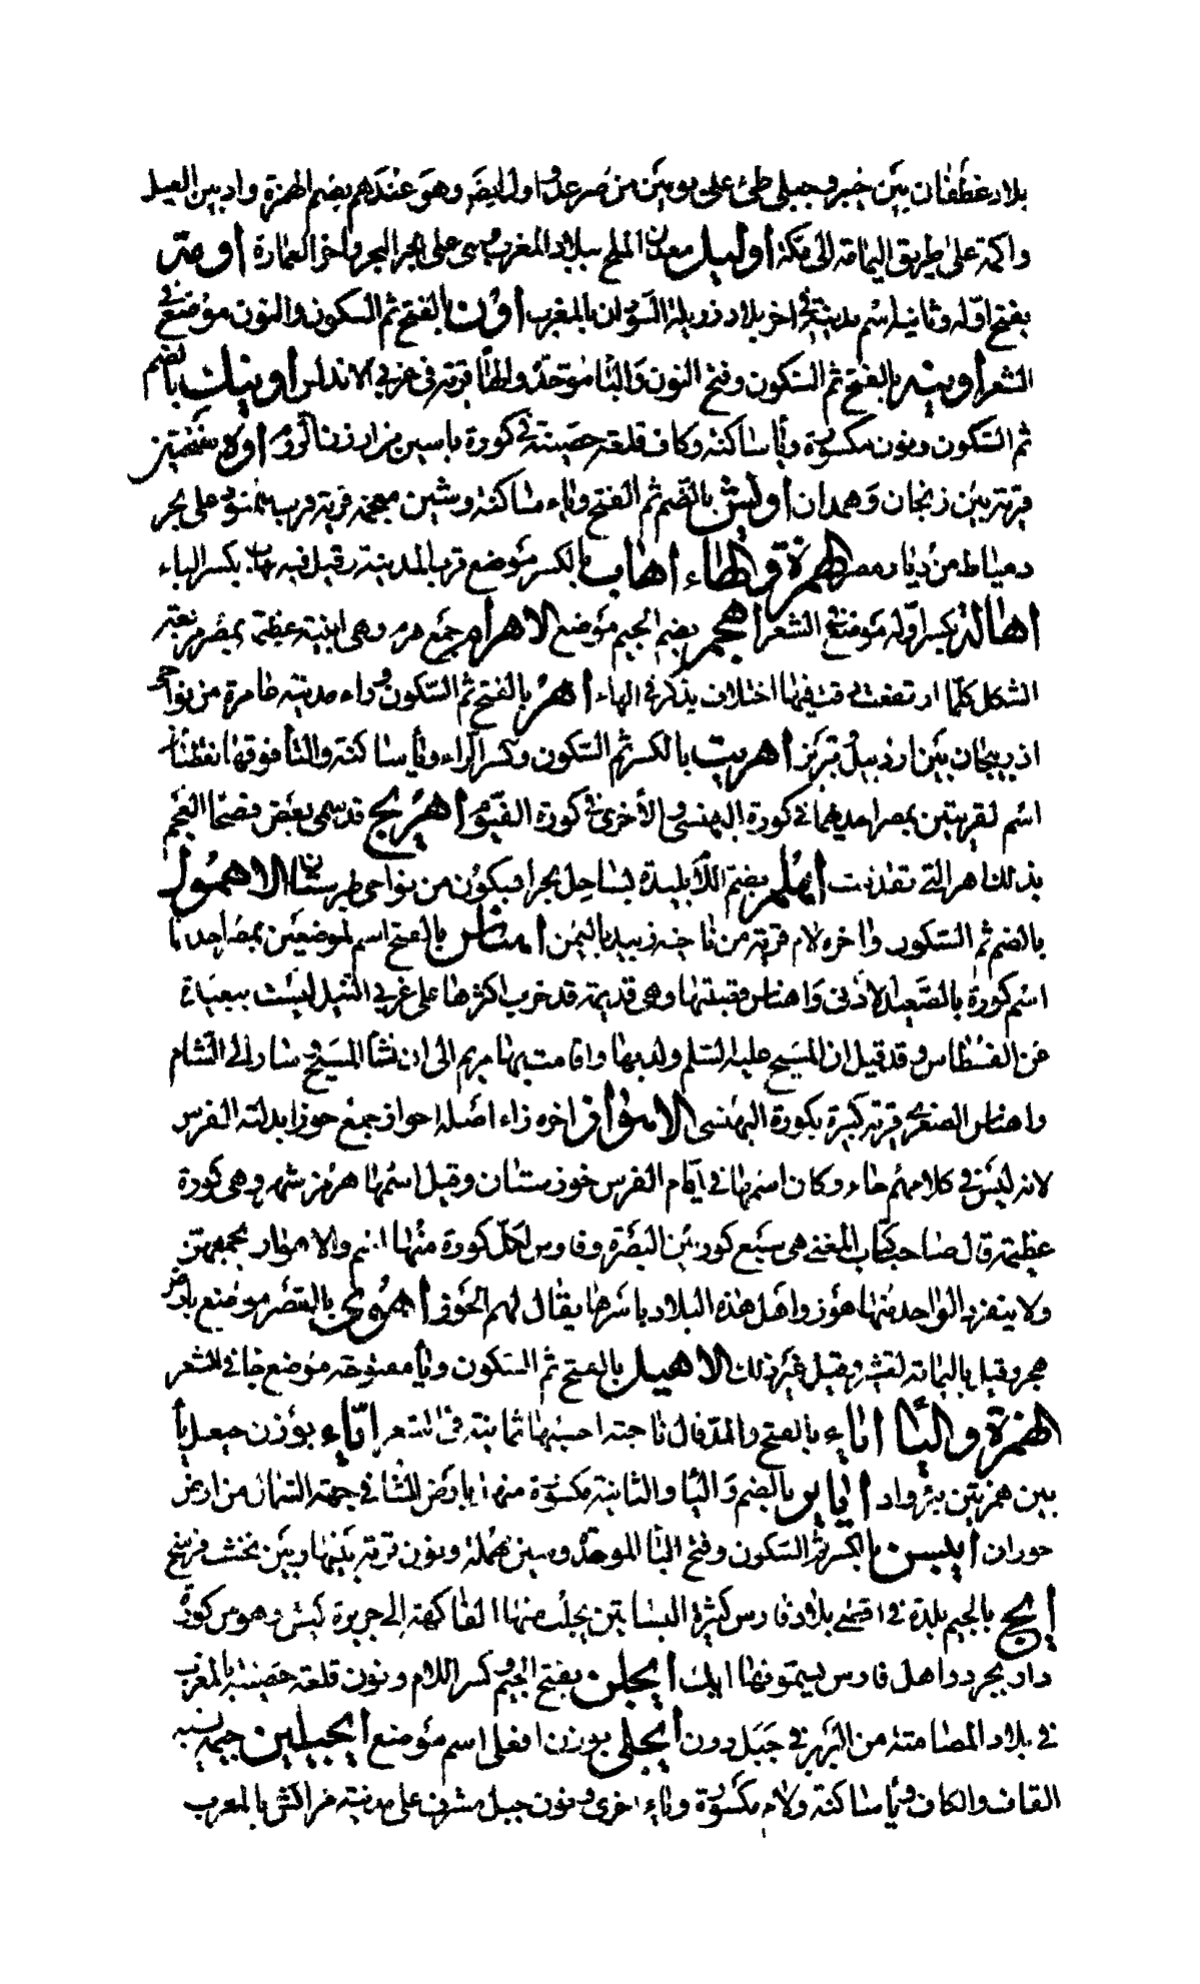 بلاد غطفان بين خيبر وجبلى طىّ على يومين من ضرغد واول ايضه وهو عندهم بضم الهمزة واد بين الغيل
واكمة على طريق اليمامة الى مكة أوليل معدن الملح ببلاد المغرب وهى على البحر واخر العمارة أومة
بفتح اوله وثانيه اسم مدينة فى اخر بلاد زويلة السودان بالمغرب أون بالفتح ثم السكون والنون موضع فى
الشعر أونبه بالفتح ثم السكون وفتح النون والبا موحدة والها قرية فى غربى الاندلس أونيك بالضم
ثم السكون ونون مكسورة ويا ساكنة وكاف قلعة حصينة فى كورة باسين من ارزن الروم أوه
قرية بين زنجان وهمدان أويش بالضم ثم الفتح وياء ساكنة وشين معجمة قرية قرب على بحر
دمياط من ديار مصر الهمزة والهاء أهاب بالكسر موضع قرب المدينة وقيل فيه يهاب بكسر الياء
أهالة بكسر اوله موضع فى الشعر أهجم بضم الجيم موضع الاهرام جمع هرم وهى ابنية عظيمة بمصر مربعة
الشكل كلما ارتفعت دقت فيها اختلاف يذكر فى الهاء أهر بالفتح ثم السكون وراء مدينة عامرة من نواحى
اذربيجان بين اردبيل وتبريز أهريت بالكسر ثم السكون وكسر الراء ويا ساكنة والتا فوقها نقطتان
اسم لقريتين بمصر احديهما فى كورة البهنسى والاخرى فى كورة الفيوم أهريج قد سمى بعض فصحا العجم
بذلك اهر التى تقدمت أهلم بضم اللام بليدة بساحل بحر ابسكون من نواحى طبرستان الاهمول
بالضم ثم السكون واخره لام قرية من ناحية زبيد باليمن أهناس بالفتح اسم لموضعين بمصر احدها
اسم كورة بالصعيد الادنى واهناس قصبتها وهى قديمة قد خرب اكثرها على غربى النيل ليست ببعيدة
عن الفسطاس وقد قيل ان المسيح عليه السلم ولد بها واقامت بها مريم الى ان نشأ المسيح وسار الى الشام
واهناس الصغرى قرية كبيرة بكورة البهنسى الاهواز اخره زاء اصله احواز جمع حوز ابدلته الفرس
لانه ليس فى كلامهم حاء وكان اسمها فى ايام الفرس خوزستان وقيل اسمها هرمز شهر وهى كورة
عظيمة قال صاحب كتاب العين هى سبع كور بين البصرة وفارس لكل كورة منها اسم والاهواز تجمعهن
ولا ينفرد الواحد منها بهوز واهل هذه البلاد باسرها يقال لهم الحوز أهوى بالقصر موضع بارض
هجر وقيل باليمامة لقشير وقيل غير ذلك الاهيل بالفتح ثم السكون ويا مفتوحة موضع جا فى الشعر
الهمزة واليا اياء بالفتح والمد قال ناحية احسبها ثمانية فى الشعر إيّاء بوزن جعل يا
بين همزتين بئر واد اياير بالضم واليا والثانية مكسورة منها بارض الشام فى جهة الشمال من ارض
حوران أيبسن بالكسر ثم السكون وفتح البا الموحدة وسين مهملة ونون قرية بينها وبين نخشب فرسخ
إيج بالجيم بلدة فى اقصى بلاد فارس كثيرة البساتين يجلب منها الفاكهة الى جزيرة كيش وهو من كورة
دارابجرد واهل فارس يسمونها ايك أيجلن بفتح الجيم وكسر اللام ونون قلعة حصينة بالمغرب
فى بلاد المصامدة من البربر فى جبل درن أيجلى بوزن افعلى اسم موضع أيجيلين جيمه بنسبه
القاف والكاف ويا ساكنة ولام مكسورة وياء اخرى ونون جبل مشرف على مدينة مراكش بالمغرب